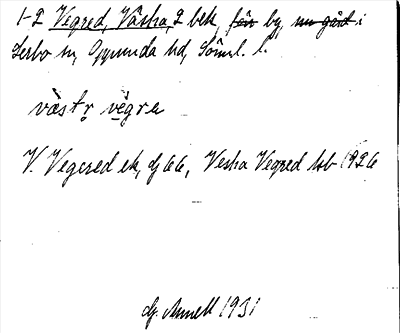 1-2 Vegred, Västra, 2 bek, förr by, nu gård i
Lerbo sn, Oppunda hd, Söml. l.
västr vegre
V. Vegered ek, Gj 66, Vestra Vegred tsb 1926
G. Annell 1931